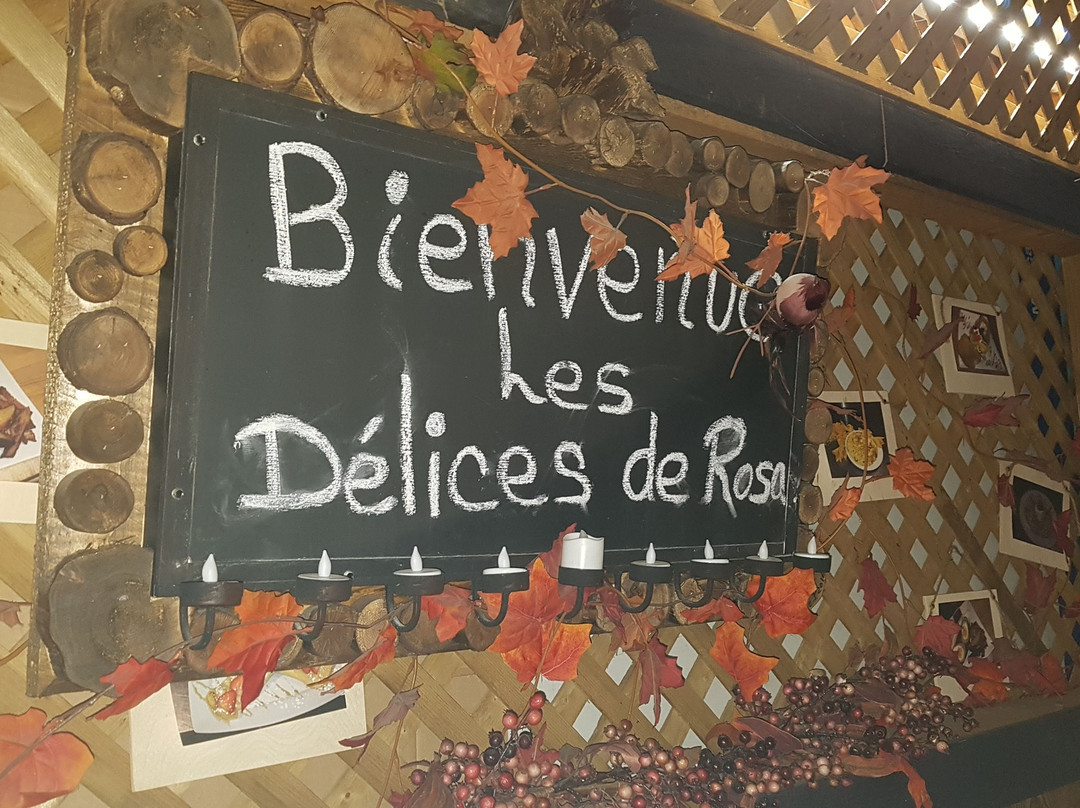 Bienvenue
Les
Délices de Rosa